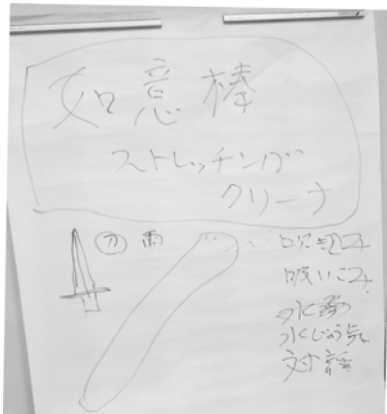 如意棒
ストレッチンガ
クリーナ
刀 雨
吹き込み
吸いこみ
水
水じょう気
対話